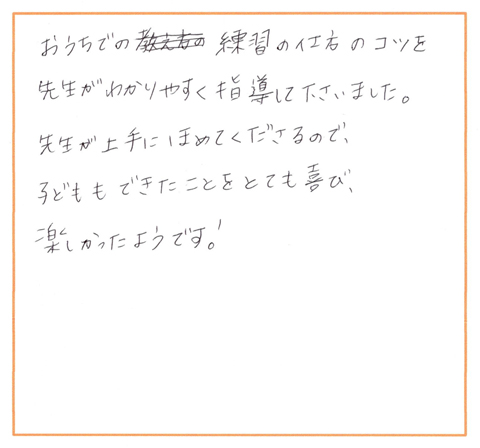 おうちでの練習の仕方のコツを
先生がわかりやすく指導して下さいました。
先生が上手にほめてくださるので、
子どももできたことをとても喜び、
楽しかったようです!